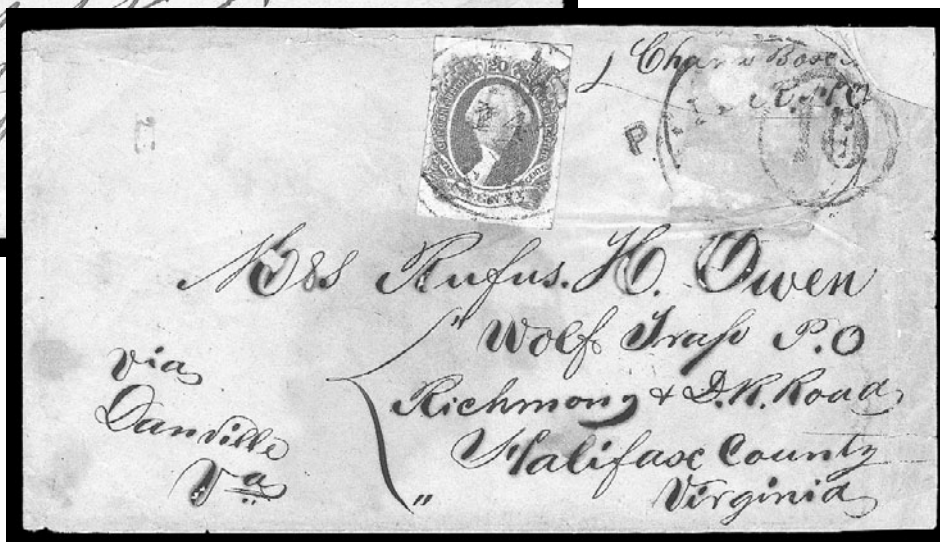 20
Chas
Box
P
10
Mrs Rufus. H. Owen
" Wolf Trap P.O
Richmond & D. R. Road
Halifax County
" Virginia
via
Danville
Va